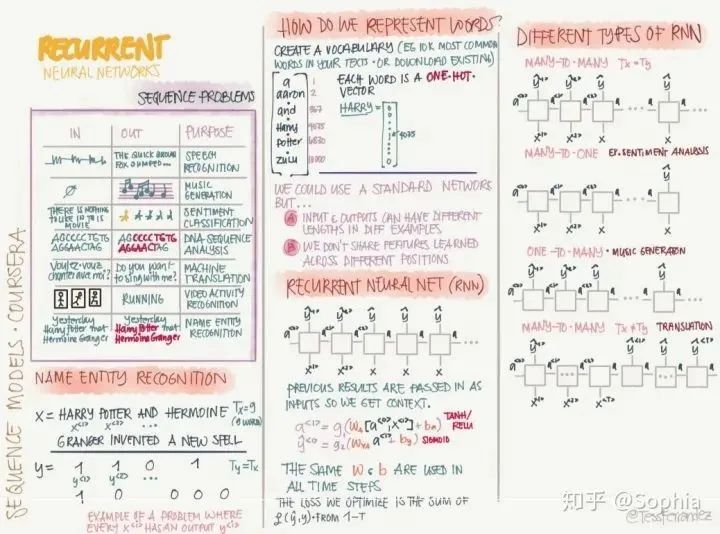 RECURRENT
NEURAL NETWORKS
SEQUENCE PROBLEMS
IN OUT PURPOSE
THE QUICK BROWN FOX JUMPED... SPEECH RECOGNITION
∅ MUSIC GENERATION
THERE IS NOTHING TO LIKE IN THIS MOVIE SENTIMENT CLASSIFICATION
AGCCCCTGTG AGGAACTAG AGCCCCTGTG AGGAACTAG DNA-SEQUENCE ANALYSIS
Voulez-vous chanter avec moi? Do you want to sing with me? MACHINE TRANSLATION
RUNNING VIDEO ACTIVITY RECOGNITION
Yesterday Harry Potter met Hermione Granger Yesterday Harry Potter met Hermione Granger NAME ENTITY RECOGNITION
SEQUENCE MODELS · COURSERA
NAME ENTITY RECOGNITION
X = HARRY POTTER AND HERMOINE Tx=9
x<1> x<2> ... (9 WORDS)
GRANGER INVENTED A NEW SPELL
y = 1 1 0 1 Ty=Tx
y<1> y<2> ...
1 0 0 0 0
EXAMPLE OF A PROBLEM WHERE
EVERY X<i> HAS AN OUTPUT y<i>
HOW DO WE REPRESENT WORDS?
CREATE A VOCABULARY (EG 10K MOST COMMON
WORDS IN YOUR TEXTS · OR DOWNLOAD EXISTING)
a 1
aaron 2
and 367
Harry 4075
Potter 6830
zulu 10000
EACH WORD IS A ONE·HOT·
VECTOR
HARRY = 4075
WE COULD USE A STANDARD NETWORK
BUT...
A INPUT & OUTPUTS CAN HAVE DIFFERENT
LENGTHS IN DIFF EXAMPLES
B WE DON'T SHARE FEATURES LEARNED
ACROSS DIFFERENT POSITIONS
RECURRENT NEURAL NET (RNN)
ŷ<1> ŷ<2> ŷ ŷ ŷ
a<0> a<1> a<2> a a a
x<1> x<2> x x x
PREVIOUS RESULTS ARE PASSED IN AS
INPUTS SO WE GET CONTEXT.
a<1> = g₁(Wa[a<0>,x<1>]+ba) TANH/RELU
ŷ<1> = g₂(Wya a<1>+by) SIGMOID
THE SAME W & b ARE USED IN
ALL TIME STEPS
THE LOSS WE OPTIMIZE IS THE SUM OF
ℒ(ŷ,y) · FROM 1-T
DIFFERENT TYPES OF RNN
MANY-TO-MANY Tx=Ty
ŷ<1> ŷ<2> ŷ ŷ
a<0> a<1> a<2> a a
x<1> x<2> x x
MANY-TO-ONE EX. SENTIMENT ANALYSIS
ŷ
a<0> a<1> a<2> a a
x<1> x<2> x x
ONE-TO-MANY · MUSIC GENERATION
MANY-TO-MANY Tx≠Ty TRANSLATION
知乎 @Sophia
@TessFerrandez